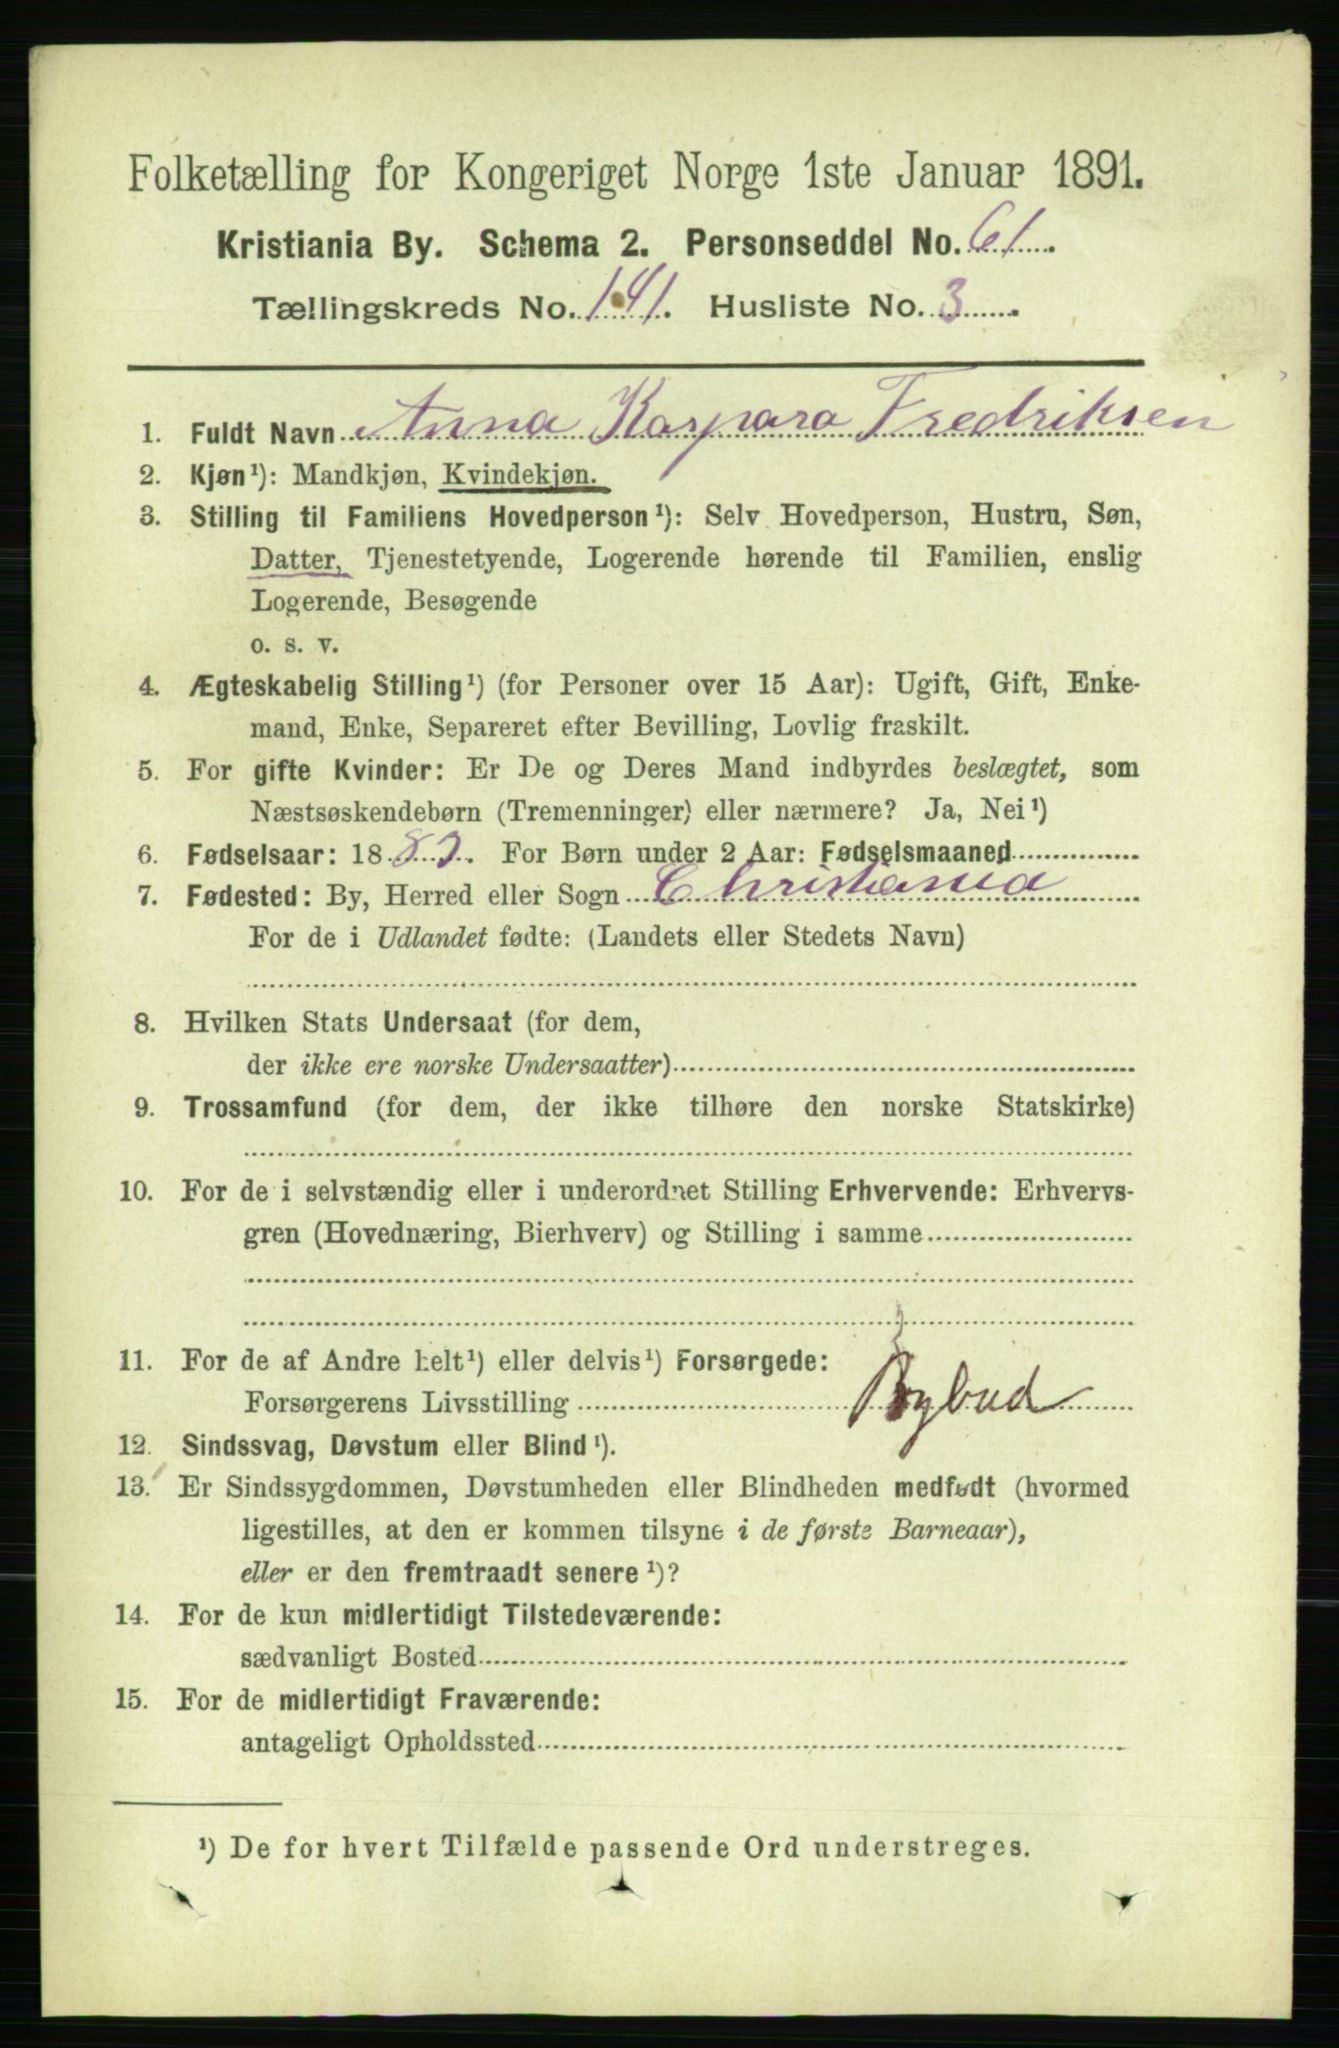 Folketælling for Kongeriget Norge 1ste Januar 1891.
Kristiania By. Schema 2. Personseddel No. 61.
Tællingskreds No. 141. Husliste No. 3.
1. Fuldt Navn Anna Kaspara Fredriksen
2. Kjøn¹): Mandkjøn, Kvindekjøn.
3. Stilling til Familiens Hovedperson¹): Selv Hovedperson, Hustru, Søn,
Datter, Tjenestetyende, Logerende hørende til Familien, enslig
Logerende, Besøgende
o. s. v.
4. Ægteskabelig Stilling¹) (for Personer over 15 Aar): Ugift, Gift, Enke-
mand, Enke, Separeret efter Bevilling, Lovlig fraskilt.
5. For gifte Kvinder: Er De og Deres Mand indbyrdes beslægtet, som
Næstsøskendebørn (Tremenninger) eller nærmere? Ja, Nei¹)
6. Fødselsaar: 18 For Børn under 2 Aar: Fødselsmaaned
7. Fødested: By, Herred eller Sogn Christiania
For de i Udlandet fødte: (Landets eller Stedets Navn)
8. Hvilken Stats Undersaat (for dem,
der ikke ere norske Undersaatter)
9. Trossamfund (for dem, der ikke tilhøre den norske Statskirke)
10. For de i selvstændig eller i underordnet Stilling Erhvervende: Erhvervs-
gren (Hovednæring, Bierhverv) og Stilling i samme
11. For de af Andre helt¹) eller delvis¹) Forsørgede:
Forsørgerens Livsstilling Bybud
12. Sindssvag, Døvstum eller Blind¹).
13. Er Sindssygdommen, Døvstumheden eller Blindheden medfødt (hvormed
ligestilles, at den er kommen tilsyne i de første Barneaar),
eller er den fremtraadt senere¹)?
14. For de kun midlertidigt Tilstedeværende:
sædvanligt Bosted
15. For de midlertidigt Fraværende:
antageligt Opholdssted
¹) De for hvert Tilfælde passende Ord understreges.